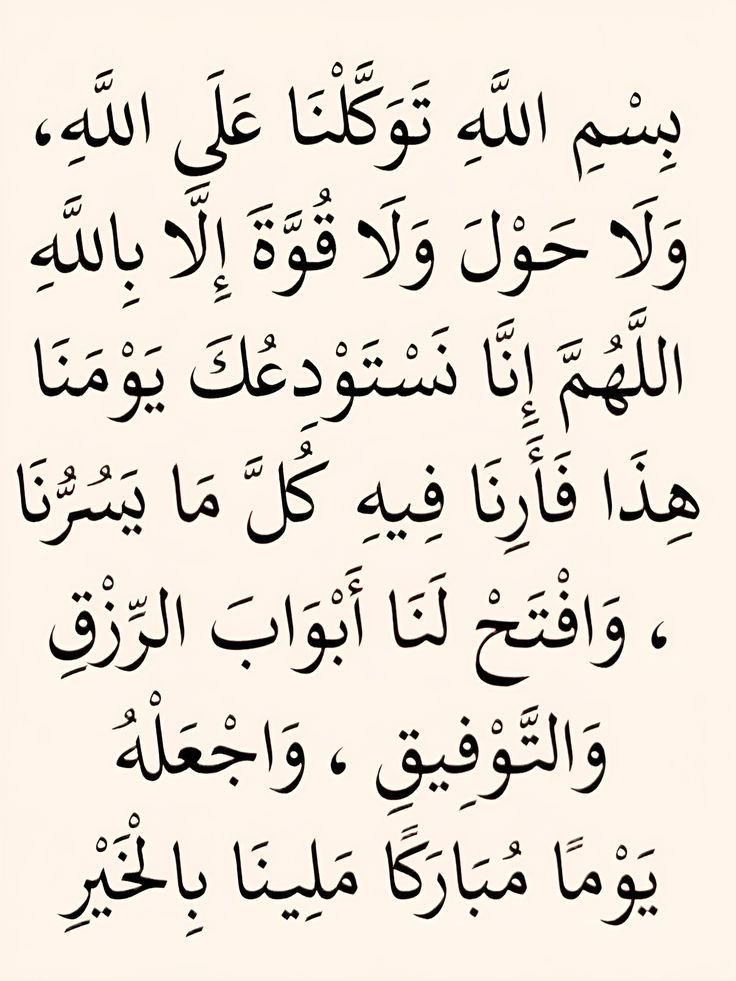 بِسْمِ اللَّهِ تَوَكَّلْنَا عَلَى اللَّهِ،
وَلَا حَوْلَ وَلَا قُوَّةَ إِلَّا بِاللَّهِ
اللَّهُمَّ إِنَّا نَسْتَوْدِعُكَ يَوْمَنَا
هِذَا فَأَرِنَا فِيهِ كُلَّ مَا يَسُرُّنَا
، وَافْتَحْ لَنَا أَبْوَابَ الرِّزْقِ
وَالتَّوْفِيقِ ، وَاجْعَلْهُ
يَوْمًا مُبَارَكًا مَلِينَا بِالْخَيْرِ